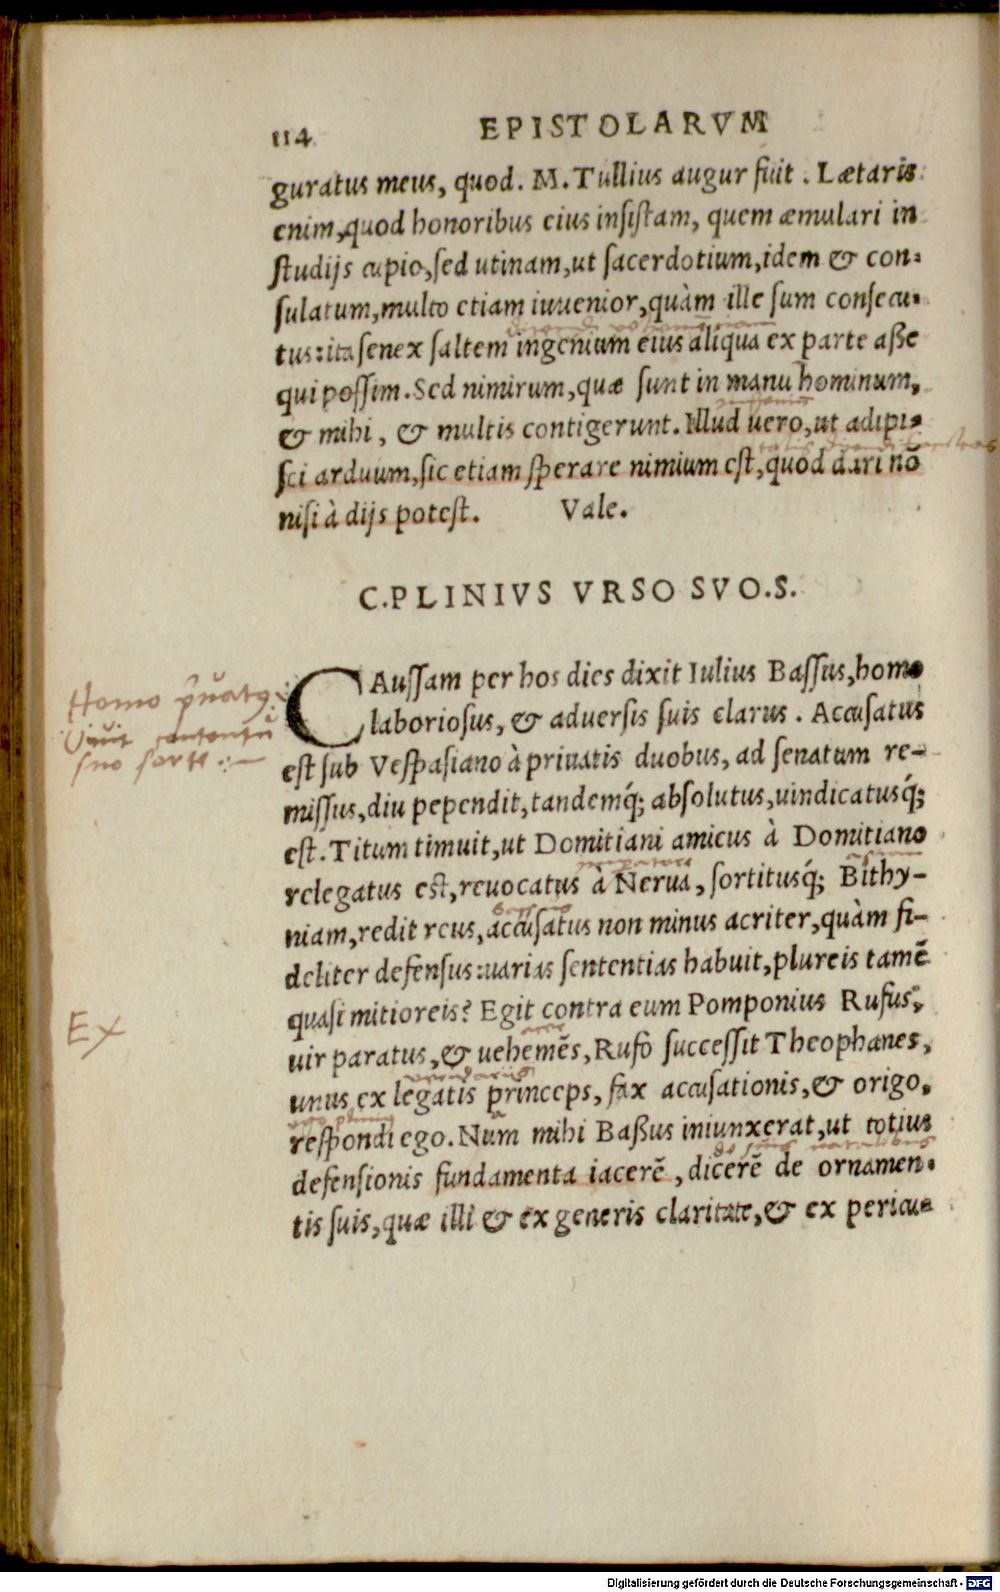 114 EPISTOLARVM
guratus meus, quod. M. Tullius augur fuit. Lætaris
enim, quod honoribus eius insistam, quem æmulari in
studijs cupio, sed utinam, ut sacerdotium, idem & con-
sulatum, multo etiam iuuenior, quàm ille sum consecu-
tus: ita senex saltem ingenium eius aliqua ex parte asse
qui possim. Sed nimirum, quæ sunt in manu hominum,
& mihi, & multis contigerunt. Illud uero, ut adipi-
sci arduum, sic etiam sperare nimium est, quod dari nō
nisi à dijs potest. Vale.
C. PLINIVS VRSO SVO. S.
CAussam per hos dies dixit Iulius Bassus, homo
laboriosus, & aduersis suis clarus. Accusatus
Homo p̄uatꝯ
Uiuit contentū
suo sorte
est sub Vespasiano à priuatis duobus, ad senatum re-
missus, diu pependit, tandemq́; absolutus, uindicatusq́;
est. Titum timuit, ut Domitiani amicus à Domitiano
relegatus est, reuocatus à Nerua, sortitusq́; Bithy-
niam, redit reus, accusatus non minus acriter, quàm fi-
deliter defensus: uarias sententias habuit, plureis tamē
quasi mitioreis? Egit contra eum Pomponius Rufus,
Ex
uir paratus, & uehemēs, Rufo successit Theophanes,
unus ex legatis princeps, fax accusationis, & origo,
respondi ego. Nam mihi Bassus iniunxerat, ut totius
defensionis fundamenta iacerē, dicerē de ornamen-
tis suis, quæ illi & ex generis claritate, & ex pericu-
Digitalisierung gefördert durch die Deutsche Forschungsgemeinschaft - DFG